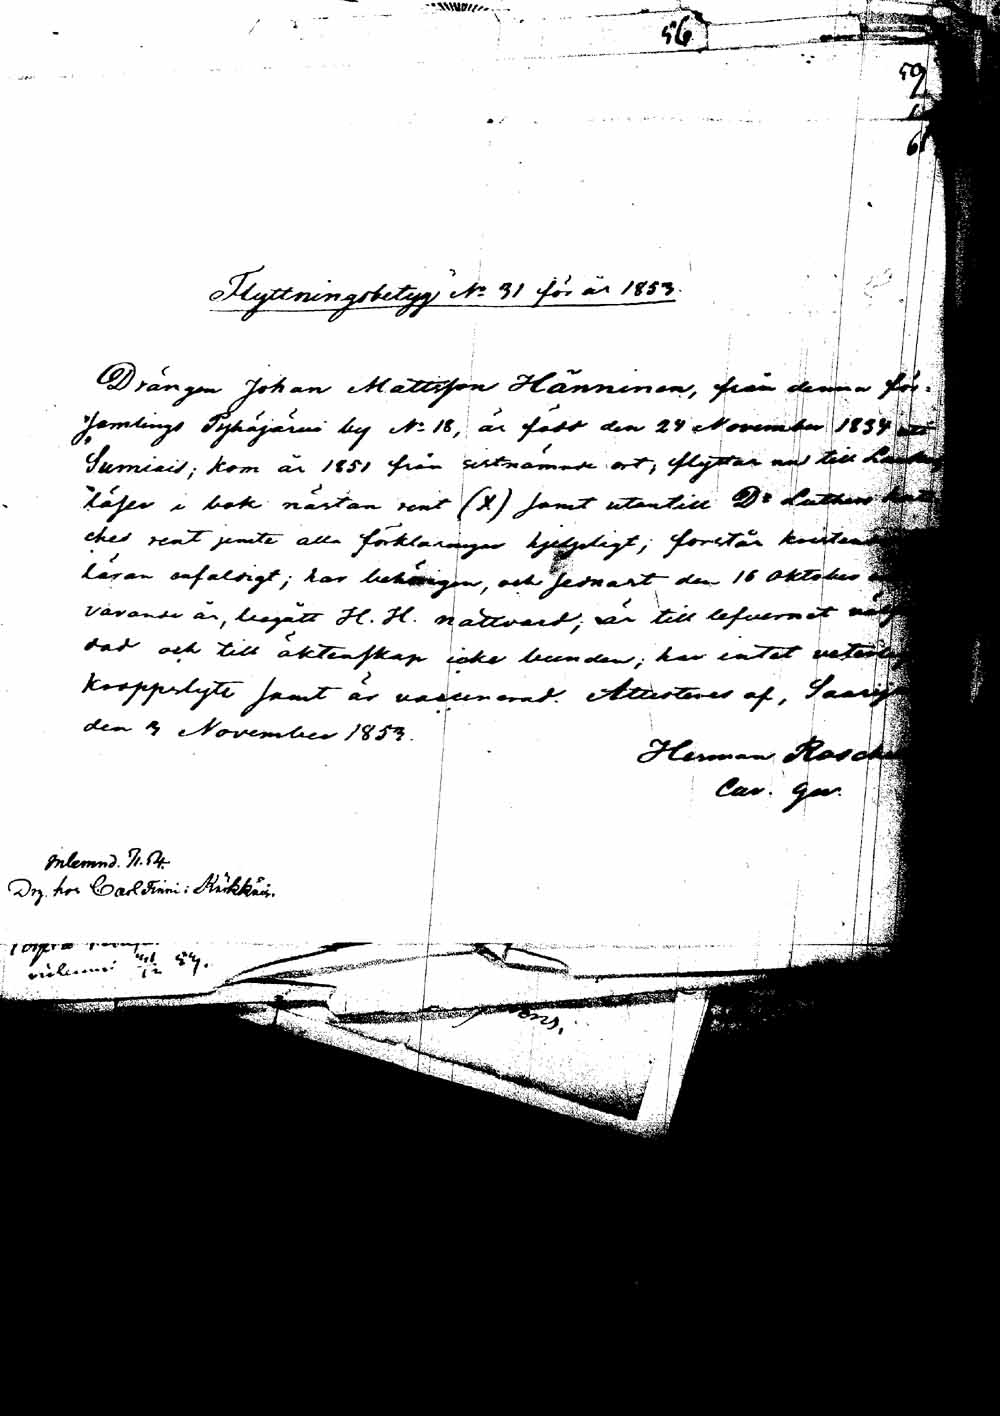 56
59
6
Flyttningsbetyg № 31 för år 1853.
Drängen Johan Mattsson Hänninen, från denna för-
samlings Pyhäjärvi by № 18, är född den 24 November 1834 uti
Sumiais; kom år 1851 från sistnämnde ort, flyttar nu till
läser i bok nästan rent (X) samt utantill Dr Luthers
ches rent jemte alla förklaringar hjelpligt; förstår
läran enfaldigt; har behörigen, och sednast den 16 Oktober
varande år, begått H. H. nattvard; är till lefvernet
dad och till äktenskap icke bunden; har intet
kroppslyte samt är vaccinerad. Attesteras af,
den 3 November 1853.
Herman
Cur. Ger.
Inlemnd. 54.
Drg. hos Carl Finni i
57.